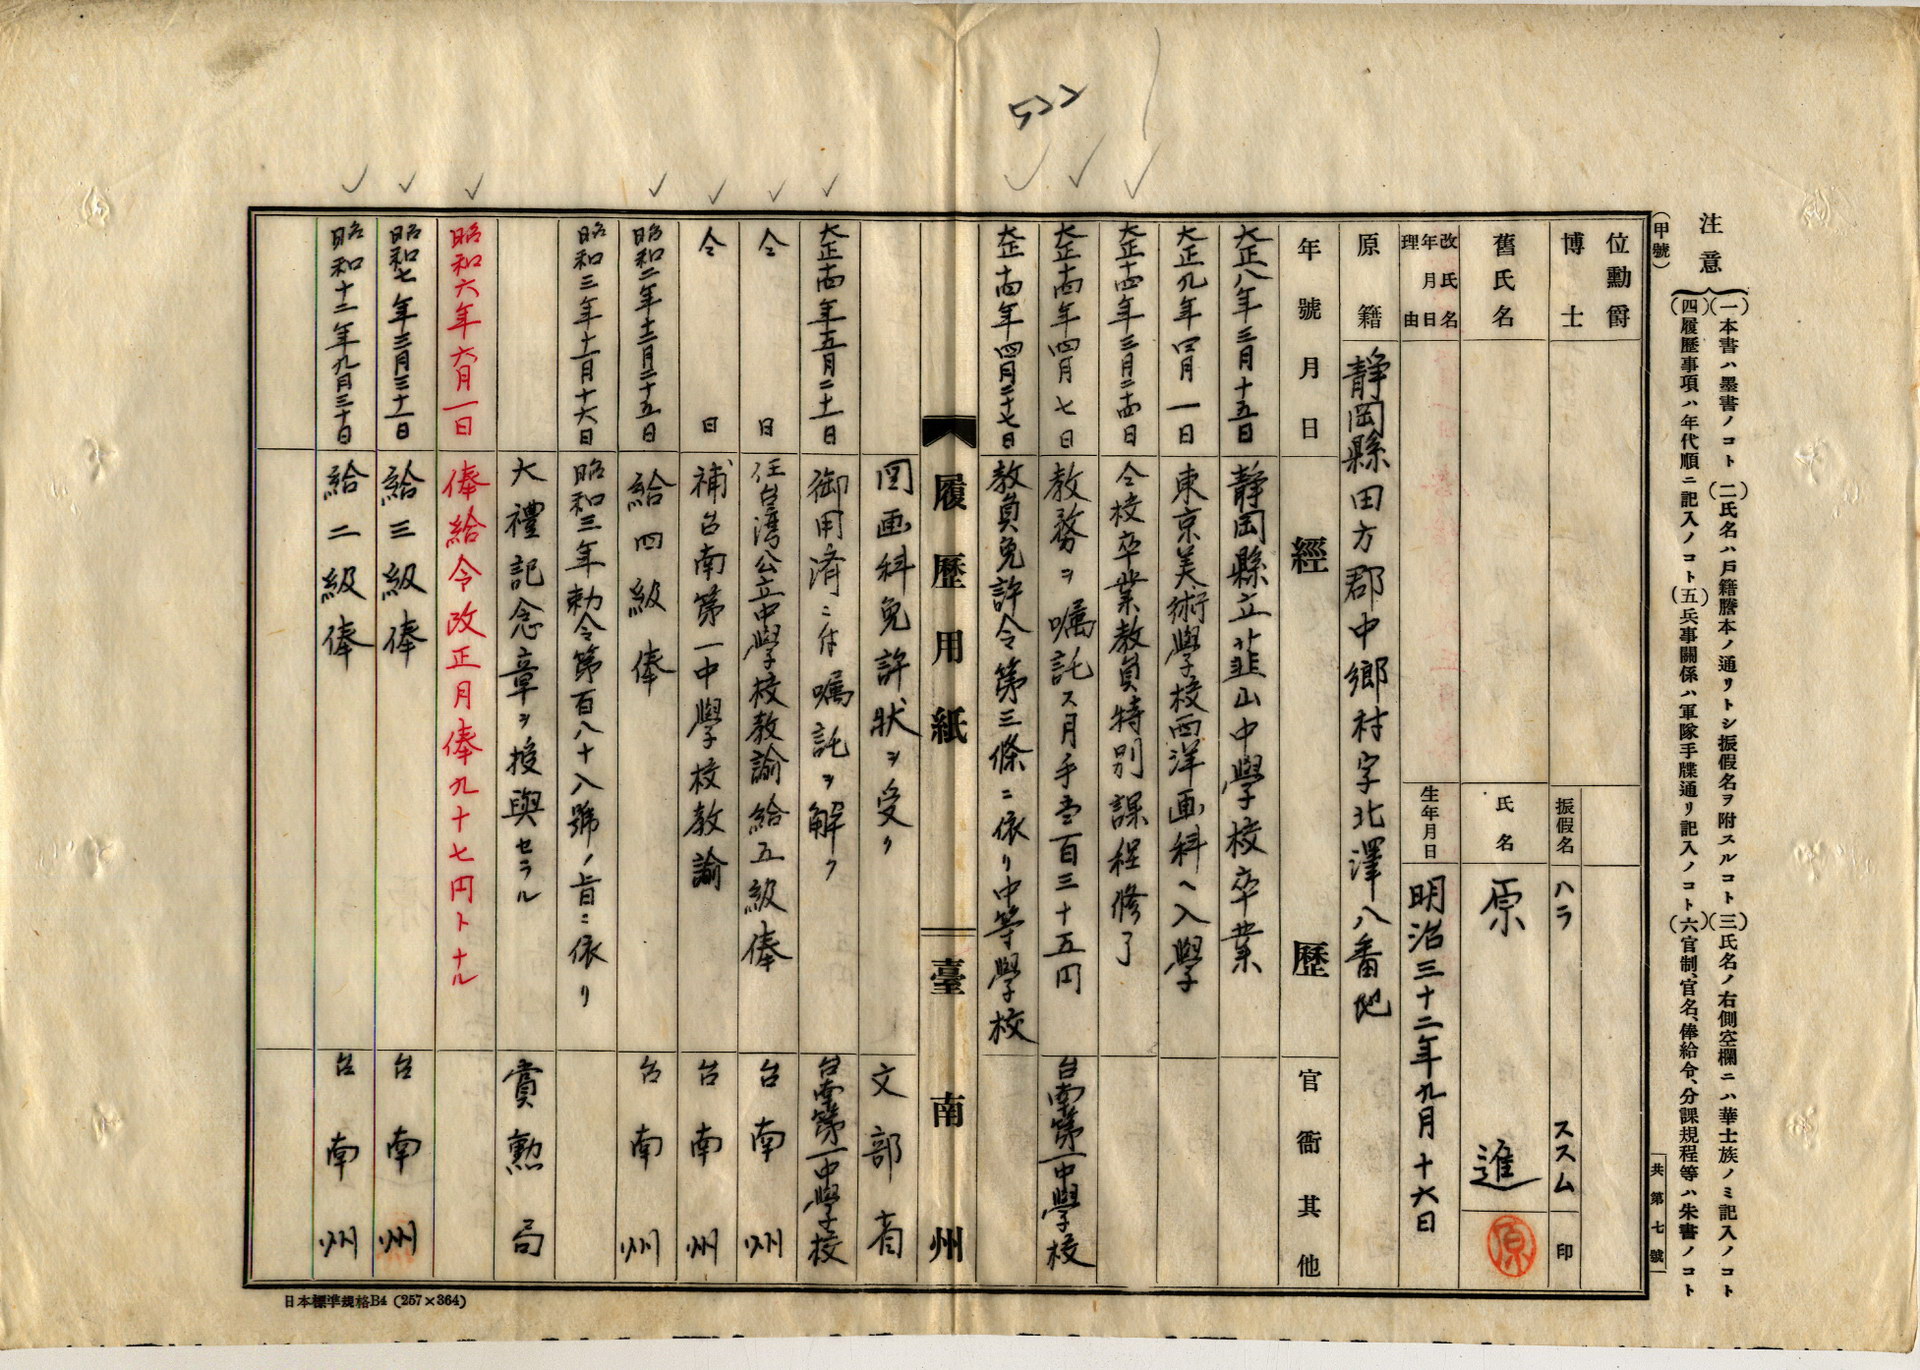 注意
(一)本書ハ墨書ノコト(二)氏名ハ戶籍謄本ノ通リトシ振假名ヲ附スルコト(三)氏名ノ右側空欄ニハ華士族ノミ記入ノコト
(四)履歷事項ハ年代順ニ記入ノコト(五)兵事關係ハ軍隊手牒通リ記入ノコト(六)官制、官名、俸給令、分課規程等ハ朱書ノコト
(甲號)
共第七號
位勳爵
博士
振假名 ハラ ススム 印
舊氏名
氏名 原 進 原
改氏名年月日理由
生年月日 明治三十二年九月十六日
原籍 静岡縣田方郡中郷村字北澤八番地
年號月日 經歷 官衙其他
大正八年三月十五日 静岡縣立韮山中學校卒業
大正九年四月一日 東京美術學校西洋画科ヘ入學
大正十四年三月二十四日 仝校卒業教員特別課程修了
大正十四年四月七日 教務ヲ嘱託ス月手当百三十五円 台南第一中學校
大正十四年四月二十七日 教員免許令第三條ニ依リ中等學校
圖画科免許狀ヲ受ク 文部省
大正十四年五月二十一日 御用済ニ付嘱託ヲ解ク 台南第一中學校
仝日 任台湾公立中學校教諭給五級俸 台南州
仝日 補台南第一中學校教諭 台南州
昭和二年十二月二十五日 給四級俸 台南州
昭和三年十一月十六日 昭和三年勅令第百八十八號ノ旨ニ依リ
大禮記念章ヲ授與セラル 賞勲局
昭和六年六月一日 俸給令改正月俸九十七円トナル
昭和七年三月三十一日 給三級俸 台南州
昭和十二年九月三十日 給二級俸 台南州
履歷用紙 臺南州
日本標準規格B4 (257×364)